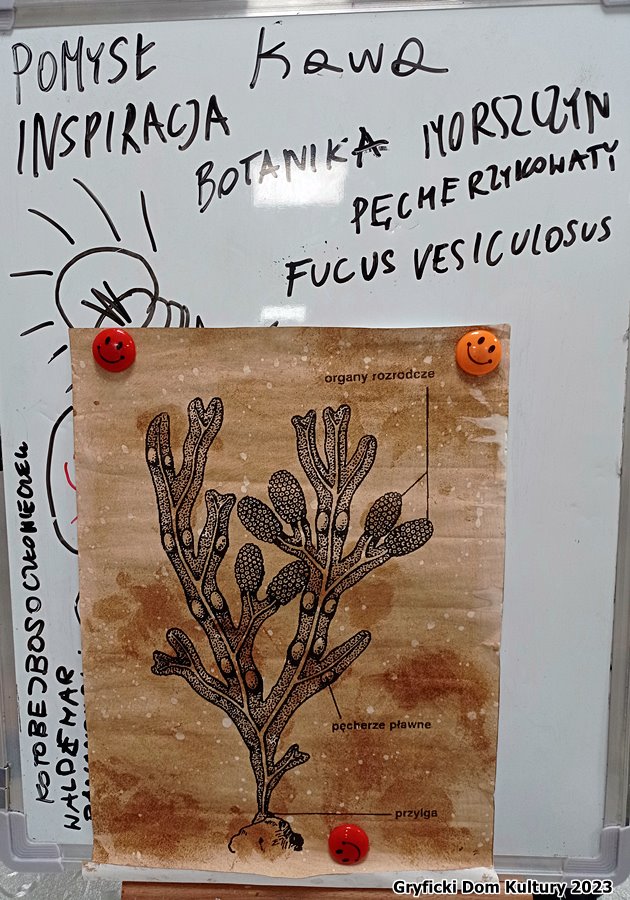 POMYSŁ Kawa
INSPIRACJA
BOTANIKA MORSZCZYN
PĘCHERZYKOWATY
FUCUS VESICULOSUS
organy rozrodcze
pęcherze pławne
przylga
WALDEMAR
Gryficki Dom Kultury 2023